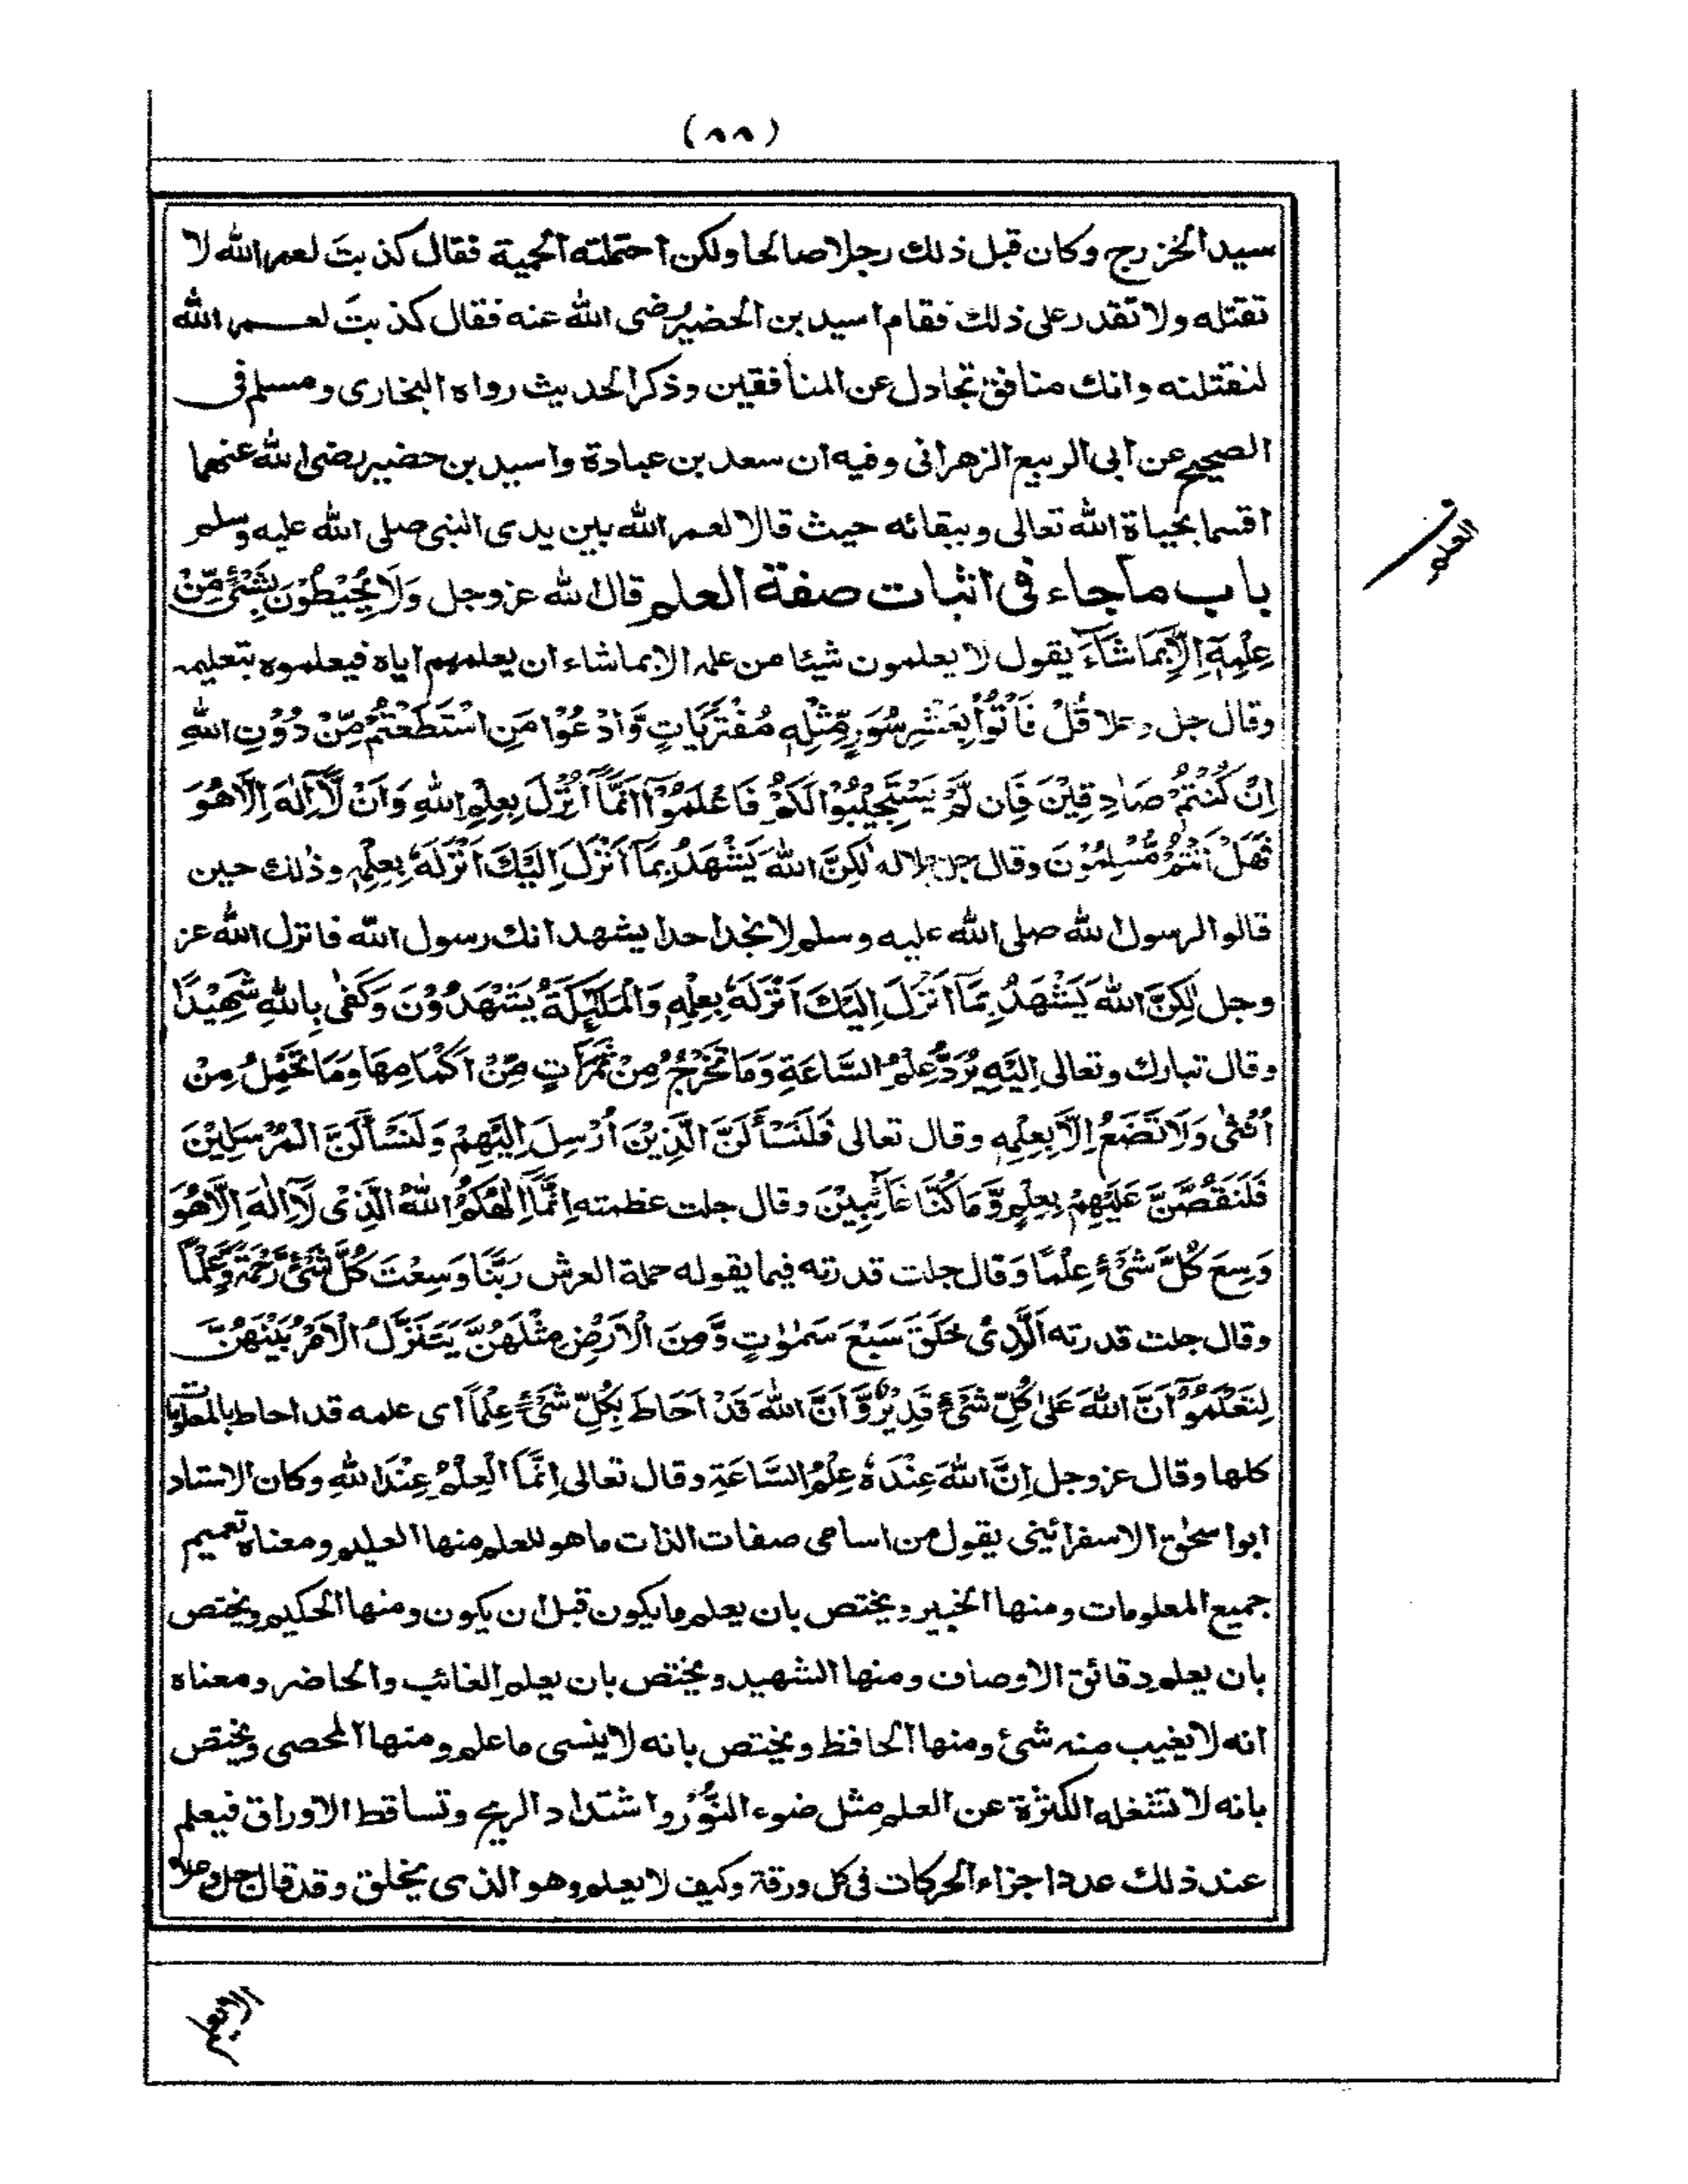 (٨٨)
سيد الخزرج وكان قبل ذلك رجلا صالحا ولكن احتملته الحمية فقال كذبتَ لعمر الله لا
تقتله ولا تقدر على ذلك فقام اسيد بن الحضير رضى الله عنه فقال كذبتَ لعمر الله
لنقتلنه وانك منافق تجادل عن المنافقين وذكر الحديث رواه البخارى ومسلم فى
الصحيح عن ابى الربيع الزهرانى وفيه ان سعد بن عبادة واسيد بن حضير رضى الله عنهما
اقسما بحياة الله تعالى وببقائه حيث قالا لعمر الله بين يدى النبى صلى الله عليه وسلم
باب ما جاء فى اثبات صفة العلم قال الله عز وجل وَلَا يُحِيْطُوْنَ بِشَىْءٍ مِّنْ
عِلْمِهٖٓ اِلَّا بِمَا شَآءَ يقول لا يعلمون شيئا من علمه الا بما شاء ان يعلمهم اياه فيعلموه بتعليمه
وقال جل وعلا قُلْ فَأْتُوْا بِعَشْرِ سُوَرٍ مِّثْلِهٖ مُفْتَرَيَاتٍ وَّادْعُوْا مَنِ اسْتَطَعْتُمْ مِّنْ دُوْنِ اللهِ
اِنْ كُنْتُمْ صَادِقِيْنَ فَاِن لَّمْ يَسْتَجِيْبُوْا لَكُمْ فَاعْلَمُوْٓا اَنَّمَآ اُنْزِلَ بِعِلْمِ اللهِ وَاَنْ لَّآ اِلٰهَ اِلَّا هُوَ
فَهَلْ اَنْتُمْ مُّسْلِمُوْنَ وقال جل جلاله لٰكِنَّ اللهَ يَشْهَدُ بِمَآ اَنْزَلَ اِلَيْكَ اَنْزَلَهٗ بِعِلْمِهٖ وذٰلك حين
قالوا لرسول الله صلى الله عليه وسلم لا نجد احدا يشهد انك رسول الله فانزل الله عز
وجل لٰكِنَّ اللهَ يَشْهَدُ بِمَآ اَنْزَلَ اِلَيْكَ اَنْزَلَهٗ بِعِلْمِهٖ وَالْمَلٰٓئِكَةُ يَشْهَدُوْنَ وَكَفٰى بِاللهِ شَهِيْدًا
وقال تبارك وتعالى اِلَيْهِ يُرَدُّ عِلْمُ السَّاعَةِ وَمَا تَخْرُجُ مِنْ ثَمَرَاتٍ مِّنْ اَكْمَامِهَا وَمَا تَحْمِلُ مِنْ
اُنْثٰى وَلَا تَضَعُ اِلَّا بِعِلْمِهٖ وقال تعالى فَلَنَسْأَلَنَّ الَّذِيْنَ اُرْسِلَ اِلَيْهِمْ وَلَنَسْأَلَنَّ الْمُرْسَلِيْنَ
فَلَنَقُصَّنَّ عَلَيْهِمْ بِعِلْمٍ وَّمَا كُنَّا غَآئِبِيْنَ وقال جلت عظمته اِنَّمَآ اِلٰهُكُمُ اللهُ الَّذِىْ لَآ اِلٰهَ اِلَّا هُوَ
وَسِعَ كُلَّ شَىْءٍ عِلْمًا وَقال جلت قدرته فيما يقوله حملة العرش رَبَّنَا وَسِعْتَ كُلَّ شَىْءٍ رَّحْمَةً وَّعِلْمًا
وقال جلت قدرته اَلَّذِىْ خَلَقَ سَبْعَ سَمٰوٰتٍ وَّمِنَ الْاَرْضِ مِثْلَهُنَّ يَتَنَزَّلُ الْاَمْرُ بَيْنَهُنَّ
لِتَعْلَمُوْٓا اَنَّ اللهَ عَلٰى كُلِّ شَىْءٍ قَدِيْرٌ وَّاَنَّ اللهَ قَدْ اَحَاطَ بِكُلِّ شَىْءٍ عِلْمًا اى علمه قد احاط بالمعلومات
كلها وقال عز وجل اِنَّ اللهَ عِنْدَهٗ عِلْمُ السَّاعَةِ وقال تعالى اِنَّمَا الْعِلْمُ عِنْدَ اللهِ وكان الاستاد
ابو اسحٰق الاسفرائينى يقول من اسامى صفات الذات ما هو للعلم منها العليم ومعناه تعميم
جميع المعلومات ومنها الخبير ويختص بان يعلم ما يكون قبل ان يكون ومنها الحكيم ويختص
بان يعلم دقائق الاوصاف ومنها الشهيد ويختص بان يعلم الغائب والحاضر ومعناه
انه لا يغيب منه شئ ومنها الحافظ ويختص بانه لا ينسى ما علم ومنها المحصى ويختص
بانه لا تشغله الكثرة عن العلم مثل ضوء النُّوْر واشتداد الريح وتساقط الاوراق فيعلم
عند ذلك عدد اجزاء الحركات فى كل ورقة وكيف لا يعلم وهو الذى يخلق وقد قال جل وعلا
العلم
الا يعلم